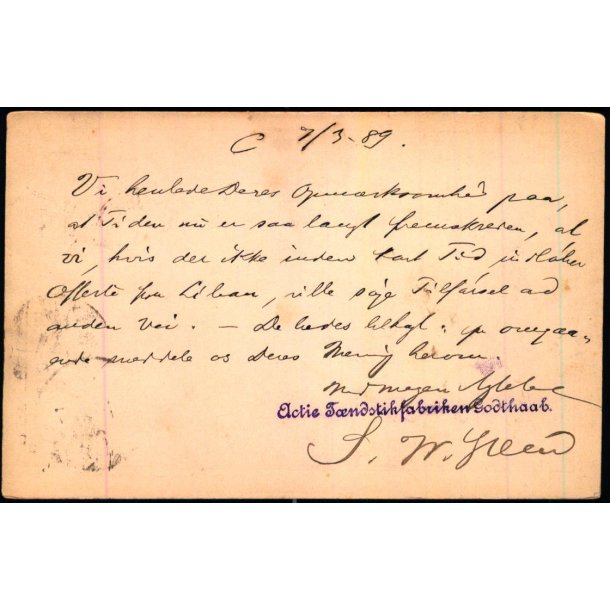 C 7/3-89.
Vi henlede Deres Opmærksomhed paa,
at Tiden nu er saa langt fremskreden, at
vi, hvis der ikke inden kort Tid indløber
Offerte fra Libau, ville søge Tilførsel ad
anden Vei. — De bedes ell. pr omgaa-
ende meddele os Deres Mening herom.
Med megen Agtelse
Actie Tændstikfabriken Godthaab.
S. W.